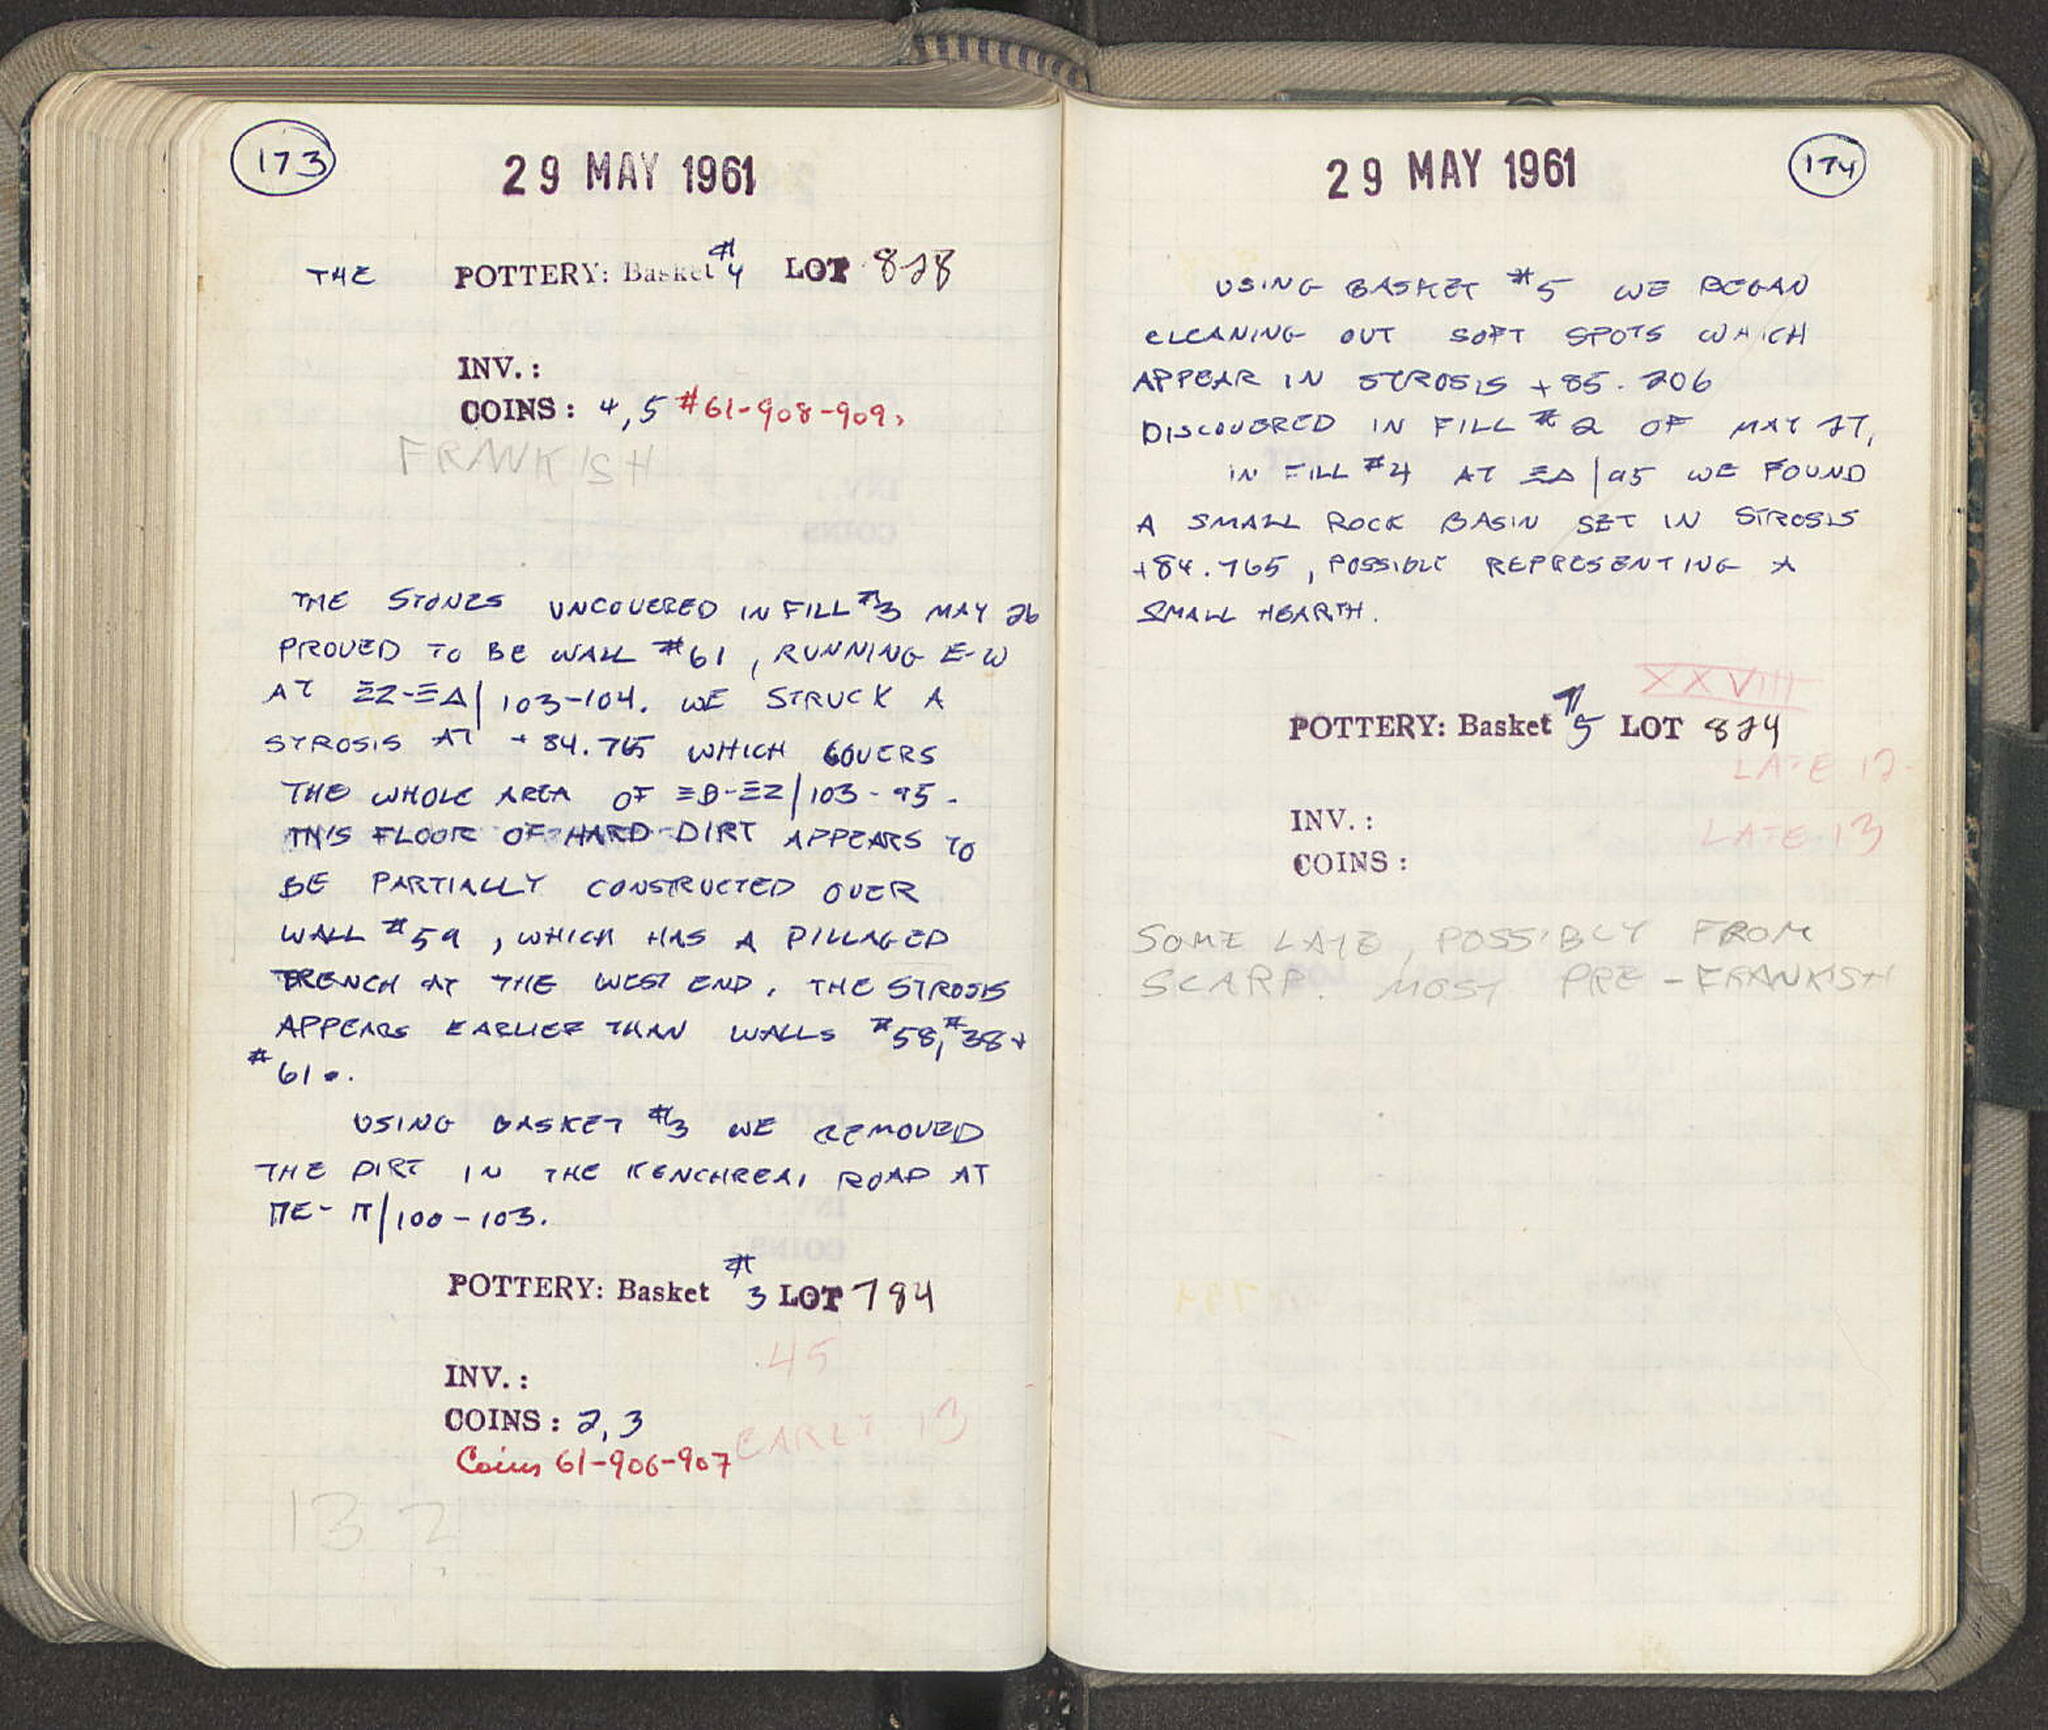 173
29 MAY 1961
THE POTTERY: Basket #4 LOT 828
INV.:
COINS: 4,5 #61-908-909,
FRANKISH
THE STONES UNCOVERED IN FILL #3 MAY 26
PROVED TO BE WALL #61, RUNNING E-W
AT ΞΖ-ΞΔ|103-104. WE STRUCK A
STROSIS AT +84.765 WHICH COVERS
THE WHOLE AREA OF ΞΒ-ΞΖ|103-95.
THIS FLOOR OF HARD DIRT APPEARS TO
BE PARTIALLY CONSTRUCTED OVER
WALL #59, WHICH HAS A PILLAGED
TRENCH AT THE WEST END. THE STROSIS
APPEARS EARLIER THAN WALLS #58, #38 +
#61.
USING BASKET #3 WE REMOVED
THE DIRT IN THE KENCHREAI ROAD AT
ΠΕ-Π|100-103.
POTTERY: Basket #3 LOT 784
45
INV.:
COINS: 2,3
EARLY 13
Coins 61-906-907
13 2
174
29 MAY 1961
USING BASKET #5 WE BEGAN
CLEANING OUT SOFT SPOTS WHICH
APPEAR IN STROSIS +85.206
DISCOVERED IN FILL #2 OF MAY 27,
IN FILL #4 AT ΞΔ|95 WE FOUND
A SMALL ROCK BASIN SET IN STROSIS
+84.765, POSSIBLY REPRESENTING A
SMALL HEARTH.
XXVIII
POTTERY: Basket #5 LOT 824
LATE 12-
INV.:
LATE 13
COINS:
SOME LATE, POSSIBLY FROM
SCARP. MOST PRE-FRANKISH